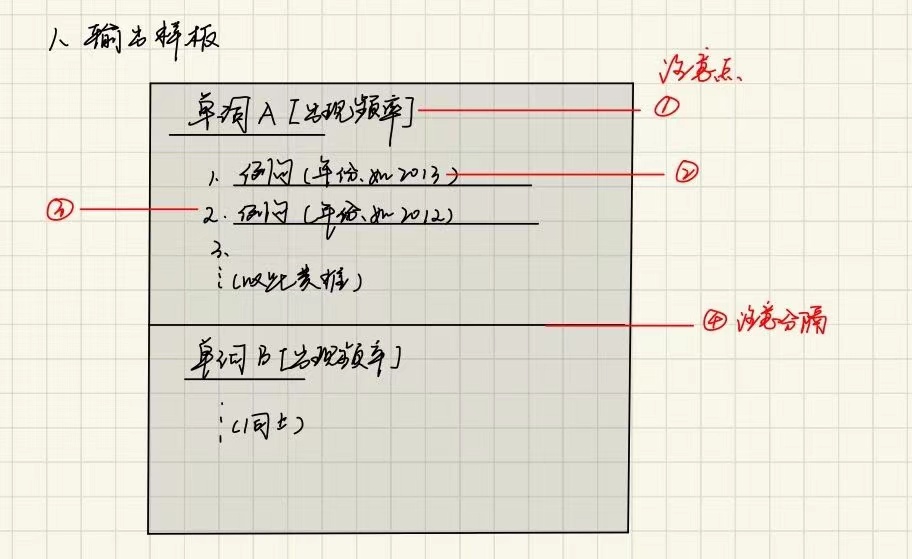 1、输出样板
注意点、
单词 A [出现频率]
①
1. 例问(年份、如2013)
②
③
2. 例问(年份、如2012)
3、
⋮(以此类推)
④ 注意分隔
单词 B [出现频率]
⋮(同上)